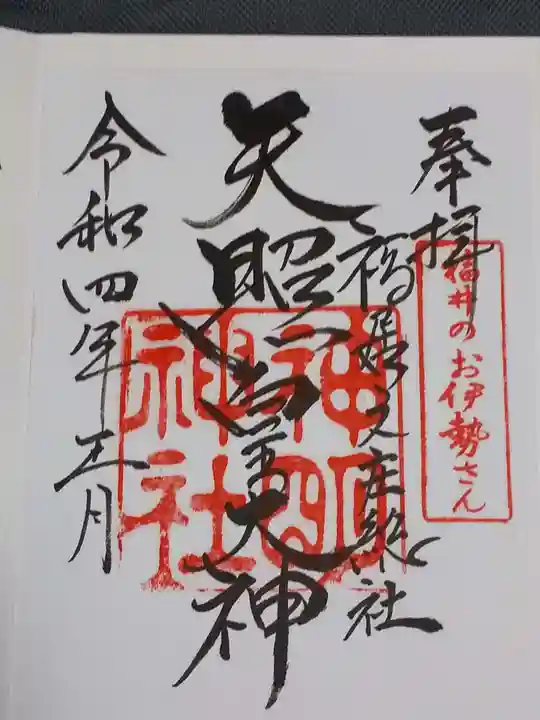 奉拝
福井のお伊勢さん
天照皇大神
神明
神社
令和四年正月